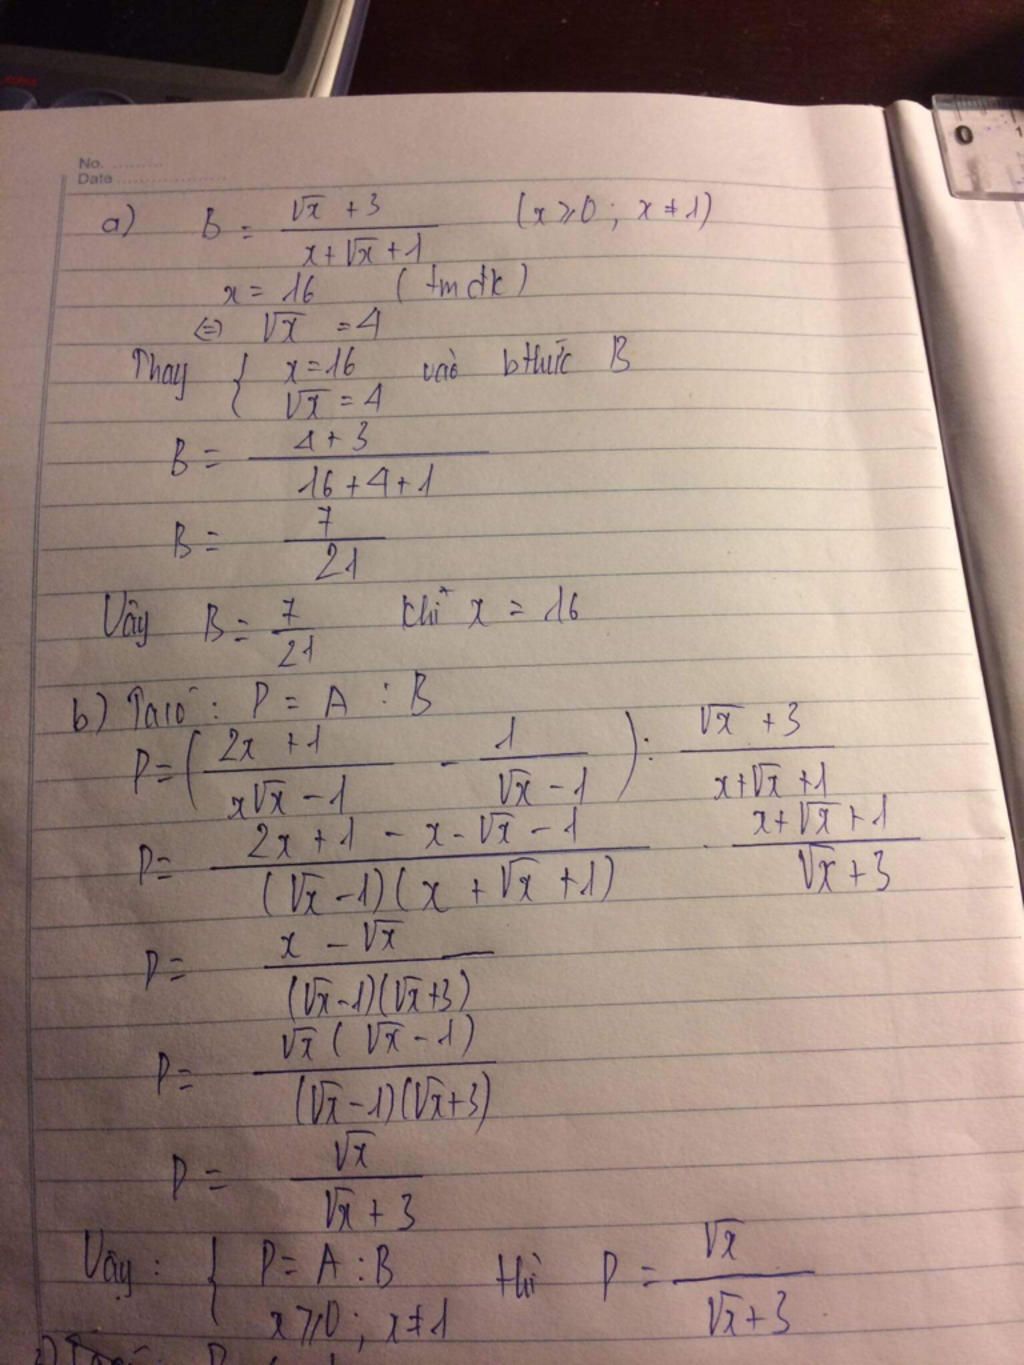 No. ..........
Date ....................
0 1
a) B = (√x + 3)/(x + √x + 1) (x ⩾ 0 ; x ≠ 1)
x = 16 (tmđk)
⇔ √x = 4
Thay { x = 16 ; √x = 4 vào bthức B
B = (4 + 3)/(16 + 4 + 1)
B = 7/21
Vậy B = 7/21 khi x = 16
b) Ta có : P = A : B
P = ( (2x + 1)/(x√x − 1) − 1/(√x − 1) ) : (√x + 3)/(x + √x + 1)
P = (2x + 1 − x − √x − 1)/((√x − 1)(x + √x + 1)) . (x + √x + 1)/(√x + 3)
P = (x − √x)/((√x − 1)(√x + 3))
P = (√x (√x − 1))/((√x − 1)(√x + 3))
P = √x/(√x + 3)
Vậy : { P = A : B ; x ⩾ 0 ; x ≠ 1 thì P = √x/(√x + 3)